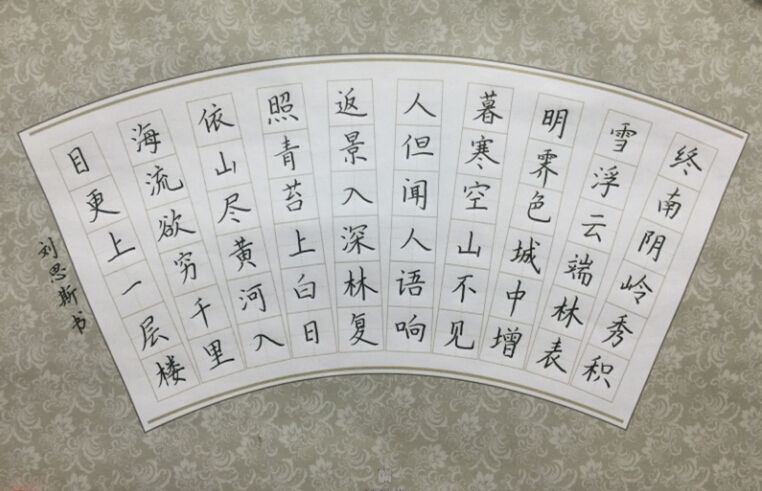 终南阴岭秀积
雪浮云端林表
明霁色城中增
暮寒空山不见
人但闻人语响
返景入深林复
照青苔上白日
依山尽黄河入
海流欲穷千里
目更上一层楼
刘思斯书